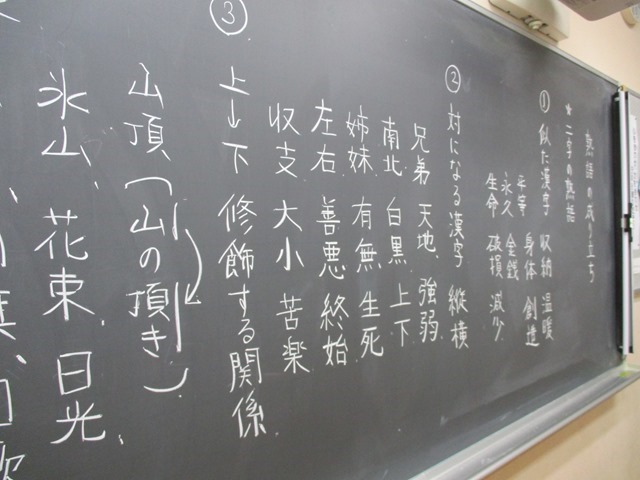 熟語の成り立ち
★二字の熟語
① 似た漢字 収納 温暖
平等 身体 創造
永久 金銭
生命 破損 減少
② 対になる漢字 縦横
兄弟 天地 強弱
南北 白黒 上下
姉妹 有無 生死
左右 善悪 終始
収支 大小 苦楽
③ 上→下 修飾する関係
山頂(山の頂き)
氷山、花束、日光、